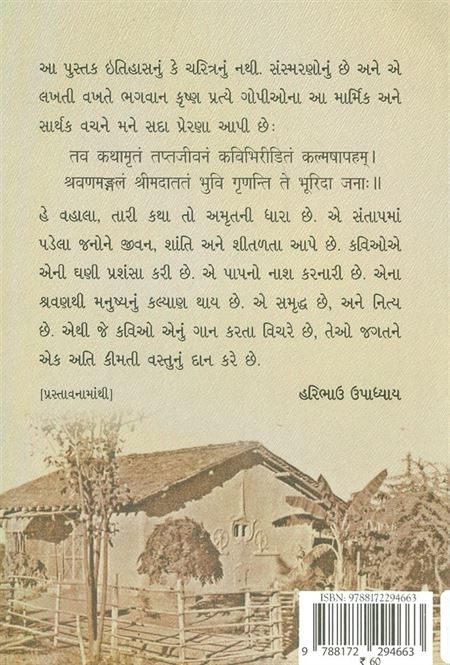 આ પુસ્તક ઇતિહાસનું કે ચરિત્રનું નથી. સંસ્મરણોનું છે અને એ
લખતી વખતે ભગવાન કૃષ્ણ પ્રત્યે ગોપીઓના આ માર્મિક અને
સાર્થક વચને મને સદા પ્રેરણા આપી છેઃ
तव कथामृतं तप्तजीवनं कविभिरीडितं कल्मषापहम्।
श्रवणमङ्गलं श्रीमदाततं भुवि गृणन्ति ते भूरिदा जनाः॥
હે વહાલા, તારી કથા તો અમૃતની ધારા છે. એ સંતાપમાં
પડેલા જનોને જીવન, શાંતિ અને શીતળતા આપે છે. કવિઓએ
એની ઘણી પ્રશંસા કરી છે. એ પાપનો નાશ કરનારી છે. એના
શ્રવણથી મનુષ્યનું કલ્યાણ થાય છે. એ સમૃદ્ધ છે, અને નિત્ય
છે. એથી જે કવિઓ એનું ગાન કરતા વિચરે છે, તેઓ જગતને
એક અતિ કીમતી વસ્તુનું દાન કરે છે.
[પ્રસ્તાવનામાંથી] હરિભાઉ ઉપાધ્યાય
ISBN: 9788172294663
9 788172 294663
₹ 60